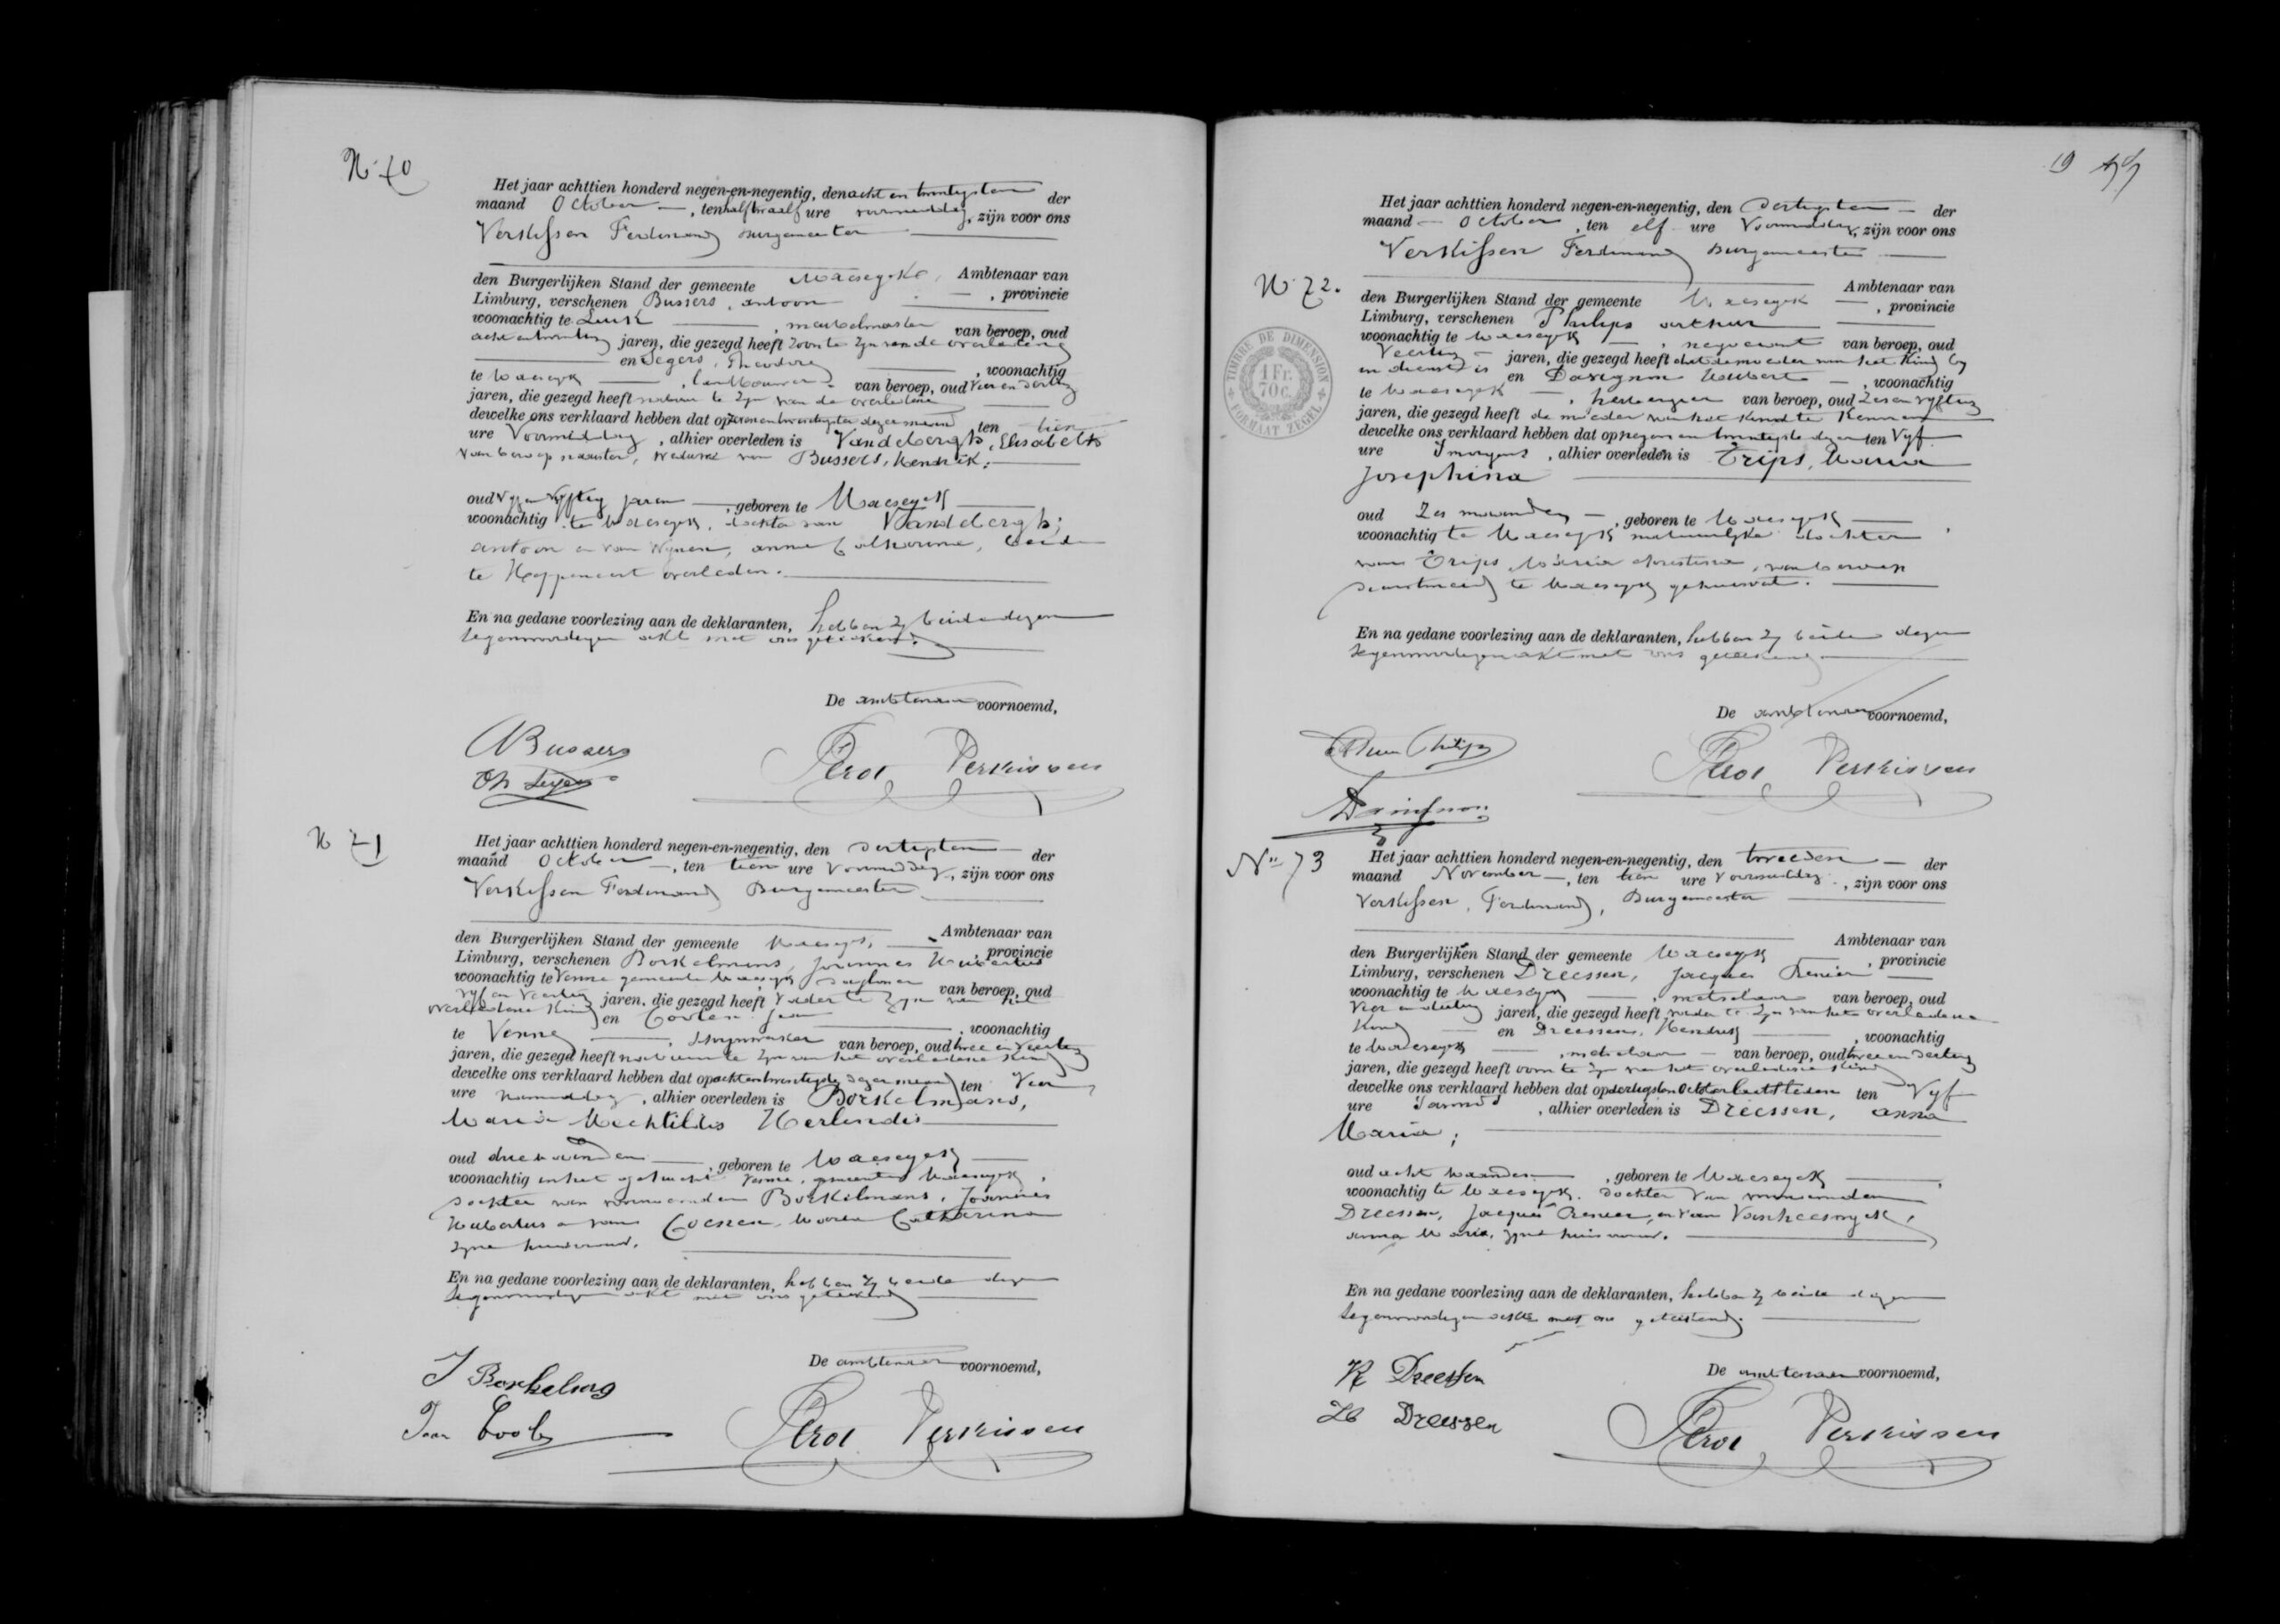 No 70
Het jaar achttien honderd negen-en-negentig, den acht en twintigsten der
maand October, ten half twaalf ure voormiddag, zijn voor ons
Verkissen Ferdinand Burgemeester
den Burgerlijken Stand der gemeente Maeseyck, Ambtenaar van
Limburg, verschenen Bussers, Antoon, provincie
woonachtig te Luik, meubelmaker van beroep, oud
acht en twintig jaren, die gezegd heeft zoon te zijn van de overledene
en Segers, Theodoor, woonachtig
te Maeseyck, landbouwer van beroep, oud vier en dertig
jaren, die gezegd heeft nabuur te zijn van de overledene
dewelke ons verklaard hebben dat op zeven en twintigsten dezer maand ten tien
ure voormiddag, alhier overleden is Vandebergh, Elisabeth
van beroep naaister, weduwe van Bussers, Hendrik;
oud vyf en vyftig jaren, geboren te Maeseyck
woonachtig te Maeseyck, dochter van Vandebergh,
Antoon en van Wynen, Anna Catharina, beide
te Heppeneert overleden.
En na gedane voorlezing aan de deklaranten, hebben zy beide dezen
tegenwoordigen akt met ons geteekend.
De ambtenaar voornoemd,
A Bussers
Th Segers
Ferd Verkissen
N 71
Het jaar achttien honderd negen-en-negentig, den dertigsten der
maand October, ten tien ure voormiddag, zijn voor ons
Verkissen Ferdinand Burgemeester
den Burgerlijken Stand der gemeente Maeseyck, Ambtenaar van
Limburg, verschenen Borkelmans, Joannes Hubertus provincie
woonachtig te Venne gemeente Maeseyck dagloner van beroep, oud
vyf en veertig jaren, die gezegd heeft vader te zyn van het
overledene kind en Coolen Jan, woonachtig
te Venne, schrynwerker van beroep, oud twee en veertig
jaren, die gezegd heeft nabuur te zyn van het overledene kind
dewelke ons verklaard hebben dat op acht en twintigsten dezer maand ten vier
ure namiddag, alhier overleden is Borkelmans,
Maria Mechtildis Herlindis
oud drie maanden, geboren te Maeseyck
woonachtig in het gehucht Venne, gemeente Maeseyck,
dochter van voornoemden Borkelmans, Joannes
Hubertus en van Coenen, Maria Catharina
zyne huisvrouw.
En na gedane voorlezing aan de deklaranten, hebben zy beide dezen
tegenwoordigen akt met ons geteekend
De ambtenaar voornoemd,
J Borkelmans
Jan Coolen
Ferd Verkissen
19
No 72.
Het jaar achttien honderd negen-en-negentig, den dertigsten der
maand October, ten elf ure voormiddag, zijn voor ons
Verkissen Ferdinand Burgemeester
den Burgerlijken Stand der gemeente Maeseyck Ambtenaar van
Limburg, verschenen Philips Arthur, provincie
woonachtig te Maeseyck, negociant van beroep, oud
veertig jaren, die gezegd heeft dat de moeder van het kind by
in dienst is en Hubert, woonachtig
te Maeseyck, herbergier van beroep, oud zes en vyftig
jaren, die gezegd heeft de moeder van het kind te kennen
dewelke ons verklaard hebben dat op negen en twintigste dezer ten vyf
ure 's morgens, alhier overleden is Trips, Maria
Josephina
oud zes maanden, geboren te Maeseyck
woonachtig te Maeseyck natuurlyke dochter
van Trips Maria Christina, van beroep
dienstmeid te Maeseyck gehuisvest.
En na gedane voorlezing aan de deklaranten, hebben zy beiden dezen
tegenwoordigen akt met ons geteekend
De ambtenaar voornoemd,
Ferd Verkissen
TIMBRE DE DIMENSION
1 Fr.
70 c.
FORMAAT ZEGEL
No 73
Het jaar achttien honderd negen-en-negentig, den tweeden der
maand November, ten tien ure voormiddag, zijn voor ons
Verkissen, Ferdinand, Burgemeester
den Burgerlijken Stand der gemeente Maeseyck Ambtenaar van
Limburg, verschenen Dreessen, Jacques Renier, provincie
woonachtig te Maeseyck, metselaar van beroep, oud
vier en dertig jaren, die gezegd heeft vader te zyn van het overledene
kind en Dreessen, Hendrik, woonachtig
te Maeseyck, metselaar van beroep, oud twee en dertig
jaren, die gezegd heeft oom te zyn van het overledene kind
dewelke ons verklaard hebben dat op dertigsten October laatstleden ten vyf
ure 's avonds, alhier overleden is Dreessen, Anna
Maria;
oud acht maanden, geboren te Maeseyck,
woonachtig te Maeseyck. Dochter van voornoemden
Dreessen, Jacques Renier, en van Vanheeswyck,
Anna Maria, zyne huisvrouw.
En na gedane voorlezing aan de deklaranten, hebben zy beide dezen
tegenwoordigen akt met ons geteekend.
De ambtenaar voornoemd,
R Dreessen
H Dreessen
Ferd Verkissen